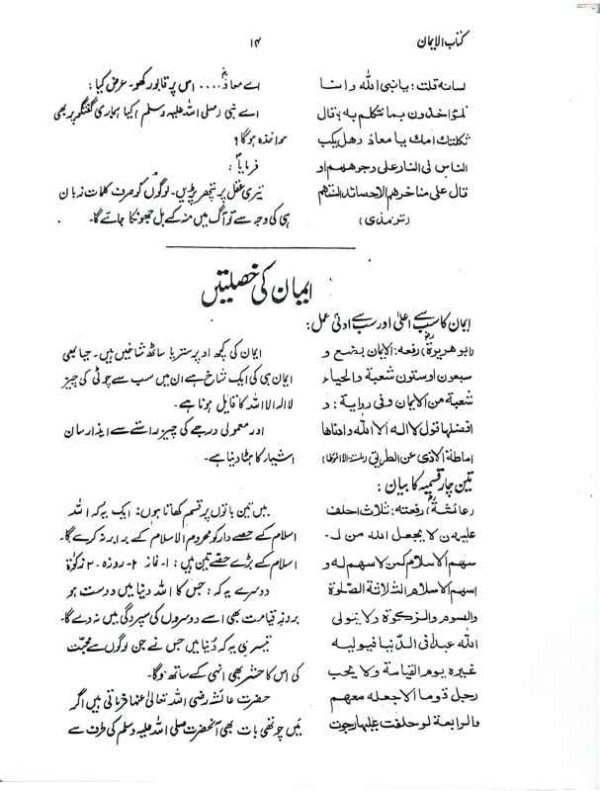 کتاب الایمان
۱۴
لسانه قلت: یا نبی الله وانا
لمؤاخذون بما نتکلم به؟ قال
ثکلتك امك یا معاذ وهل یکب
الناس فی النار علی وجوههم او
قال علی مناخرهم الاحصائد السنتهم
(ترمذی)
اے معاذؓ .... اس پر قابو رکھو۔ عرض کیا:
اے نبی (صلی اللہ علیہ وسلم) کیا ہماری گفتگو پر بھی
مواخذہ ہوگا؟
فرمایا:
تیری عقل پر پتھر پڑیں۔ لوگوں کو صرف کلمات زبان
ہی کی وجہ سے تو آگ میں منہ کے بل جھونکا جائے گا۔
ایمان کی خصلتیں
ایمان کا سب سے اعلیٰ اور سب سے ادنیٰ عمل:
(ابو هریرةؓ) رفعه: الایمان بضع و
سبعون او ستون شعبة والحیاء
شعبة من الایمان وفی روایة: و
افضلها قول لا اله الا الله وادناها
اماطة الاذی عن الطریق
ایمان کی کچھ اوپر ستر یا ساٹھ شاخیں ہیں۔ حیا بھی
ایمان ہی کی ایک شاخ ہے ان میں سب سے چوٹی کی چیز
لا الہ الا اللہ کا قایل ہونا ہے۔
اور معمولی درجے کی چیز راستے سے ایذا رسان
اشیاء کا ہٹا دینا ہے۔
تین چار قسمیہ کا بیان:
(عائشةؓ) رفعته: ثلاث احلف
علیهن لا یجعل الله من لـ
سهم الاسلام کمن لا سهم له و
اسهم الاسلام الثلاثة الصلوة
والصوم والزکوة ولا یتولی
الله عبدا فی الدنیا فیولیه
غیره یوم القیامة ولا یحب
رجل قوما الا جعله معهم
والرابعة لو حلفت علیها رجوت
میں تین باتوں پر قسم کھاتا ہوں: ایک یہ کہ اللہ
اسلام کے حصے دار کو محروم الاسلام کے برابر نہ کرے گا۔
اسلام کے بڑے حصے تین ہیں: ۱- نماز ۲- روزہ ۔ ۳ زکوٰۃ
دوسرے یہ کہ: جس کا اللہ دنیا میں دوست ہو
بروز قیامت بھی اسے دوسروں کی سپردگی میں نہ دے گا۔
تیسری یہ کہ دنیا میں جس نے جن لوگوں سے محبت
کی اس کا حشر بھی انہی کے ساتھ ہوگا۔
حضرت عائشہ رضی اللہ تعالیٰ عنہا فرماتی ہیں اگر
میں چوتھی بات بھی آنحضرت صلی اللہ علیہ وسلم کی طرف سے